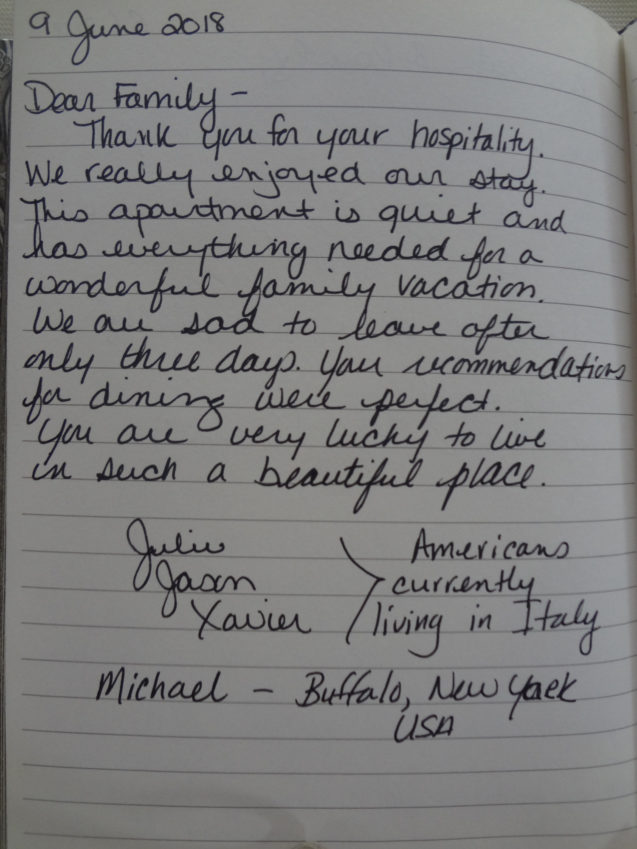 9 June 2018
Dear Family -
Thank you for your hospitality.
We really enjoyed our stay.
This apartment is quiet and
has everything needed for a
wonderful family vacation.
We are sad to leave after
only three days. Your recommendations
for dining were perfect.
You are very lucky to live
in such a beautiful place.
Julie
Jason
Xavier
Americans
currently
living in Italy
Michael - Buffalo, New York
USA